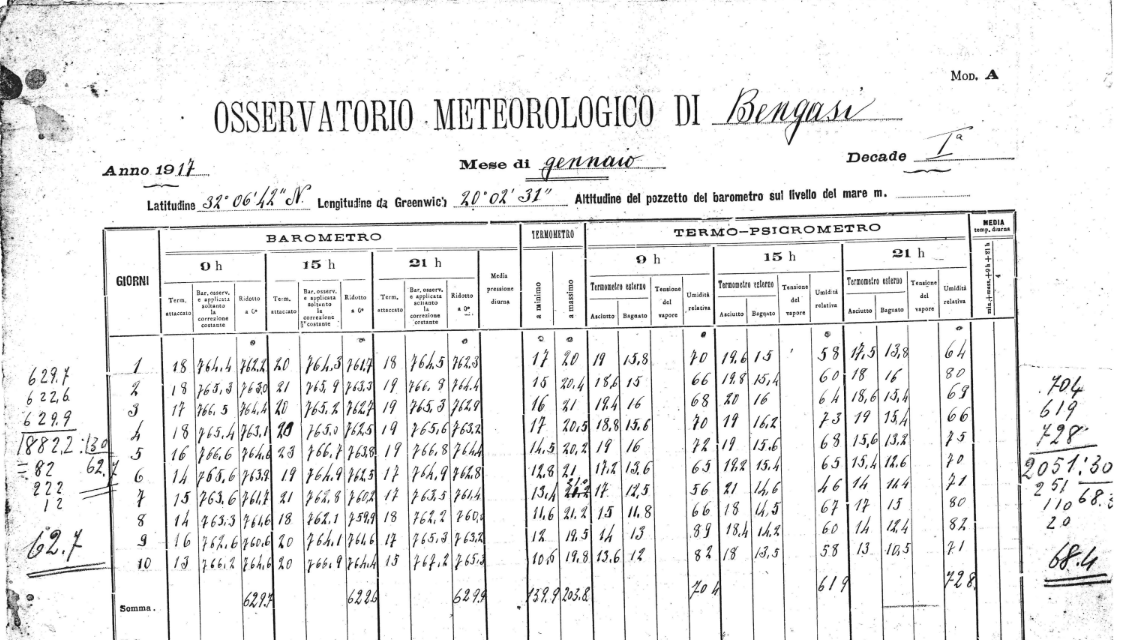 Mod. A
OSSERVATORIO METEOROLOGICO DI Bengasi
Anno 1917 Mese di gennaio Decade Iª
Latitudine 32° 06' 42" N. Longitudine da Greenwich 20° 02' 31" Altitudine del pozzetto del barometro sul livello del mare m.
GIORNI BAROMETRO TERMOMETRO TERMO-PSICROMETRO MEDIA temp. diurna
9 h 15 h 21 h Media pressione diurna a minimo a massimo 9 h 15 h 21 h min.+mass.+9 h+21 h 4
Term. attaccato Bar. osserv. e applicata soltanto la correzione costante Ridotto a 0° Term. attaccato Bar. osserv. e applicata soltanto la correzione costante Ridotto a 0° Term. attaccato Bar. osserv. e applicata soltanto la correzione costante Ridotto a 0°
Termometro esterno Tensione del vapore Umidità relativa Termometro esterno Tensione del vapore Umidità relativa Termometro esterno Tensione del vapore Umidità relativa
Asciutto Bagnato Asciutto Bagnato Asciutto Bagnato
1 18 764,4 762,2 20 764,3 761,7 18 764,5 762,3 17 20 19 15,8 70 19,6 15 58 17,5 13,8 64
2 18 765,3 763,0 21 765,9 763,3 19 766,8 764,4 15 20,4 18,6 15 66 19,8 15,4 60 18 16 80
3 17 766,5 764,4 20 765,2 762,7 19 765,3 762,9 16 21 19,4 16 68 20 16 64 18,6 15,4 69
4 18 765,4 763,1 20 765,0 762,5 19 765,6 763,2 17 20,5 18,8 15,6 70 19 16,2 73 19 15,4 66
5 16 766,6 764,6 23 766,7 763,8 19 766,8 764,4 14,5 20,2 19 16 72 19 15,6 68 15,6 13,2 75
6 14 765,6 763,9 19 764,9 762,5 17 764,9 762,8 12,8 21 17,2 13,6 65 19,2 15,4 65 15,4 12,6 70
7 15 763,6 761,7 21 762,8 760,2 17 763,5 761,4 13,4 17 12,5 56 21 14,6 46 14 11,4 71
8 14 763,3 761,6 18 762,1 759,9 18 762,2 760,0 11,6 21,2 15 11,8 66 18 14,5 67 17 15 80
9 16 762,6 760,6 20 764,1 761,6 17 765,3 763,2 12 19,5 14 13 89 18,4 14,2 60 14 12,4 82
10 13 766,2 764,6 20 766,9 764,4 15 767,2 765,3 10,6 19,8 13,6 12 82 18 13,5 58 13 10,5 71
Somma. 629.7 622.6 629.9 139.9 203.8 704 619 728
629.7
622.6
629.9
1882.2:30
= 82 62.7
222
12
62.7
704
619
728
2051:30
251 68.3
110
20
68.4